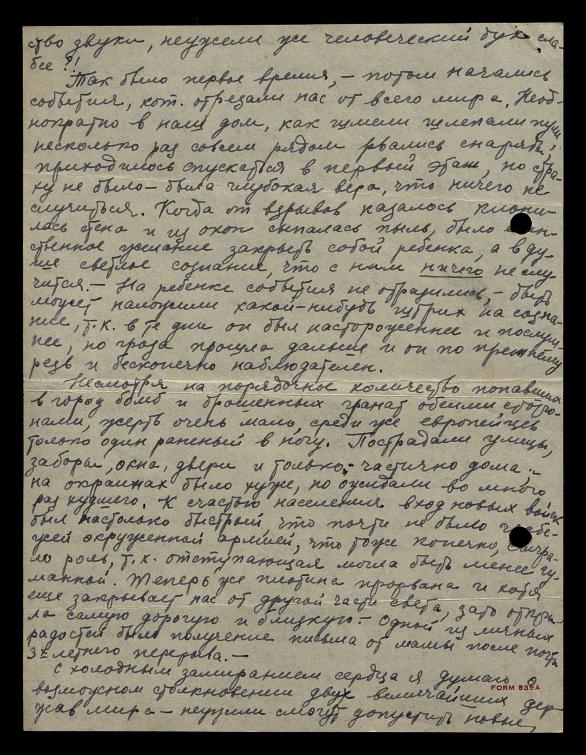 ство звука, неужели же человеческий дух сла-
бее?!
Так было первое время, – потом начались
события, кот. отрезали нас от всего мира. Неод-
нократно в наш дом, как шмели шлепали пули
несколько раз совсем рядом рвались снаряды,
приходилось спускаться в первый этаж, но стра-
ху не было – была глубокая вера, что ничего не
случиться. Когда от взрывов казалось клони-
лась стена и из окон сыпалась пыль, было
ственное желание закрыть собой ребенка, а в ду-
ше светлое сознание, что с ним ничего не слу-
чится. – На ребенке события не отразились, – быть
может наложили какой-нибудь штрих на созна-
ние, т.к. в те дни он был настороженнее и послуш-
нее, но гроза прошла дальше и он по прежнему
резв и бесконечно наблюдателен.
Несмотря на порядочное количество попавших
в город бомб и брошенных гранат обеими сторо-
нами, жертв очень мало, среди же европейцев
только один раненый в ногу. Пострадали улицы,
заборы, окна, двери и только, – частично дома. –
На окраинах было хуже, но ожидали во много
раз худшего. К счастью населения вход новых войск
был настолько быстрый, что почти не было
жей окруженной армией, что тоже конечно, сыгра-
ло роль, т.к. отступающая могла быть менее гу-
манной. Теперь же плотина прорвана и хотя
еще закрывает нас от другой части света, зато откры-
ла самую дорогую и близкую. – Одной из личных
радостей было получение письма от мамы после почти
3х летнего перерыва. –
С холодным замиранием сердца я думаю о
возможном столкновении двух величайших дер-
жав мира – неужели смогут допустить новые
FORM 539A